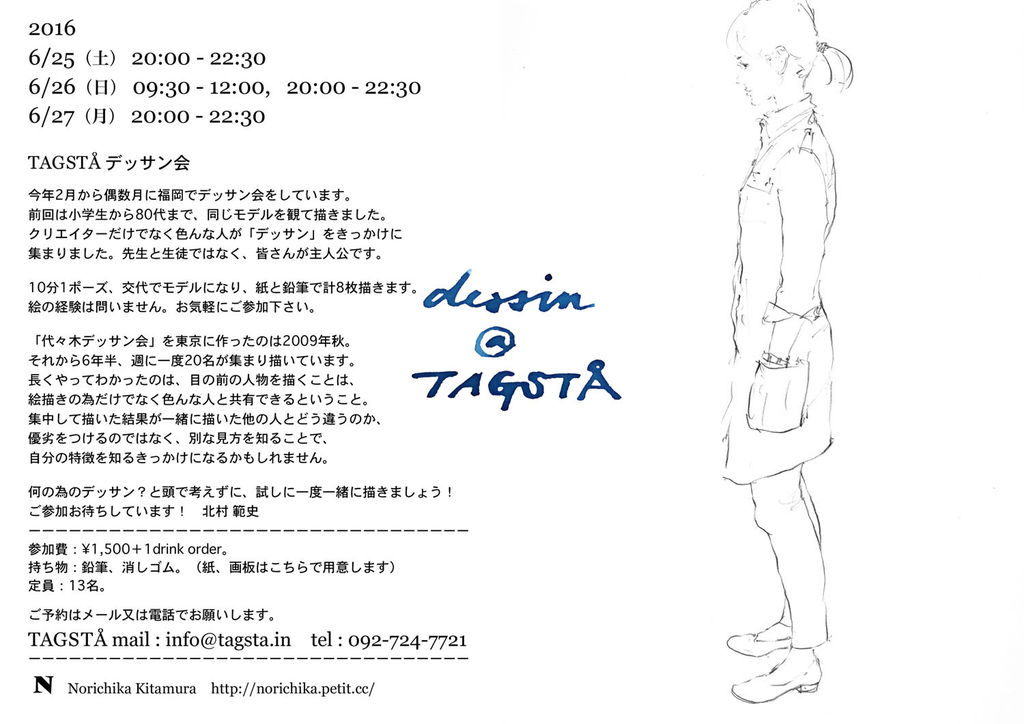 2016
6/25（土） 20:00 - 22:30
6/26（日） 09:30 - 12:00,  20:00 - 22:30
6/27（月） 20:00 - 22:30
TAGSTÅ デッサン会
今年2月から偶数月に福岡でデッサン会をしています。
前回は小学生から80代まで、同じモデルを観て描きました。
クリエイターだけでなく色んな人が「デッサン」をきっかけに
集まりました。先生と生徒ではなく、皆さんが主人公です。
10分1ポーズ、交代でモデルになり、紙と鉛筆で計8枚描きます。
絵の経験は問いません。お気軽にご参加下さい。
「代々木デッサン会」を東京に作ったのは2009年秋。
それから6年半、週に一度20名が集まり描いています。
長くやってわかったのは、目の前の人物を描くことは、
絵描きの為だけでなく色んな人と共有できるということ。
集中して描いた結果が一緒に描いた他の人とどう違うのか、
優劣をつけるのではなく、別な見方を知ることで、
自分の特徴を知るきっかけになるかもしれません。
何の為のデッサン？と頭で考えずに、試しに一度一緒に描きましょう！
ご参加お待ちしています！　北村 範史
dessin
@
TAGSTÅ
参加費：¥1,500＋1drink order。
持ち物：鉛筆、消しゴム。（紙、画板はこちらで用意します）
定員：13名。
ご予約はメール又は電話でお願いします。
TAGSTÅ mail : info@tagsta.in   tel : 092-724-7721
N Norichika Kitamura   http://norichika.petit.cc/